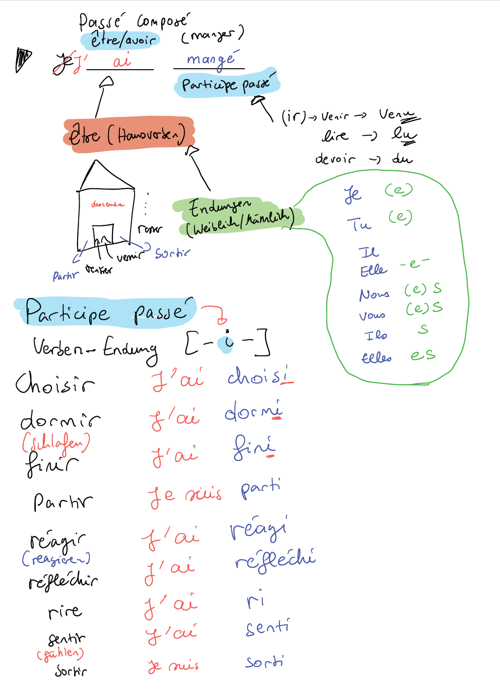 Passé composé
être/avoir (manger)
Je J' ai mangé
Participe passé
(ir) → venir → venu
lire → lu
devoir → du
être (Hausverben)
Endungen
(Weiblich/Männlich)
descendre
rester
venir
sortir
Partir
rentrer
Je (e)
Tu (e)
Il
Elle -e-
Nous (e) s
vous (e) s
Ils s
Elles es
Participe passé
Verben-Endung [- i -]
Choisir J'ai choisi
dormir J'ai dormi
(schlafen)
finir J'ai fini
Partir Je suis parti
réagir J'ai réagi
(reagieren)
réfléchir J'ai réfléchi
rire J'ai ri
sentir J'ai senti
(fühlen)
sortir Je suis sorti